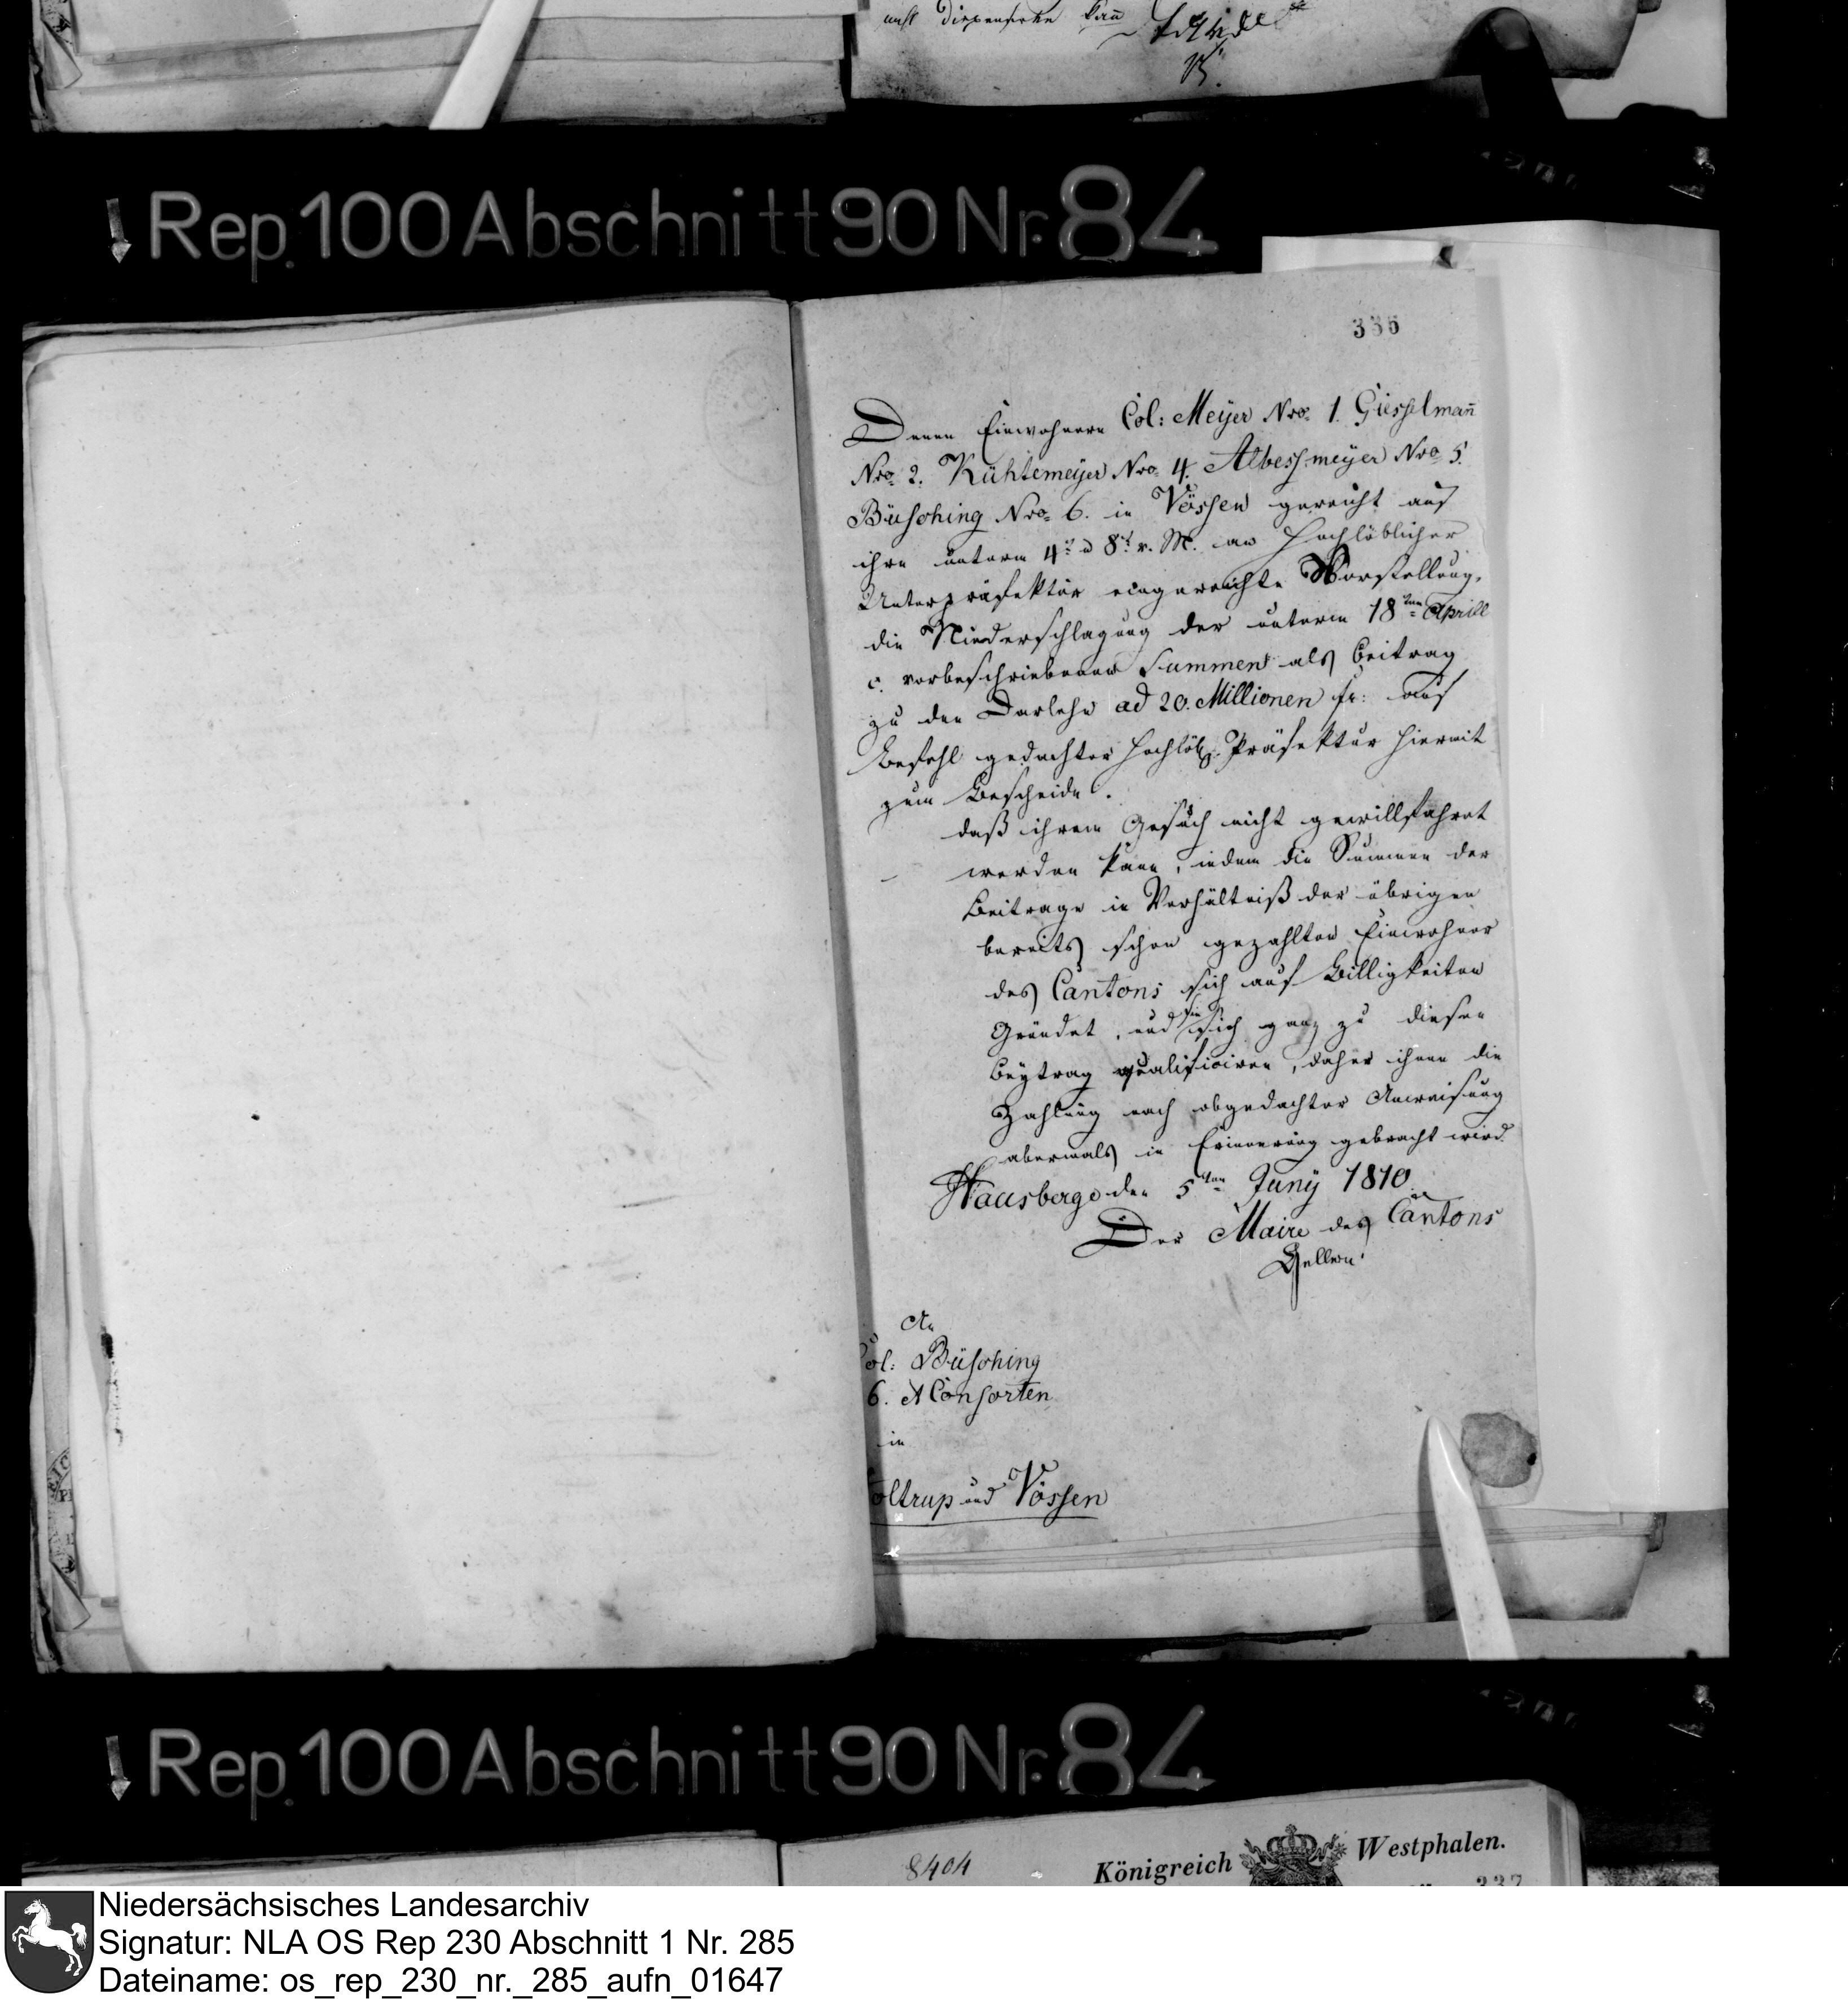 nicht dispensiren kann
Rep. 100 Abschnitt 90 Nr. 84
336
Denen Einwohnern Col: Meyer Nro. 1. Giesselman̄
Nro. 2. Kühtemeyer Nro. 4. Albesmeyer Nro 5.
Büsching Nro. 6. in Vössen gereicht auf
ihre unterm 4t. u 8t. v. M. an Hochlöblicher
Unterpräfektur eingereichte Vorstellung,
die Niederschlagung der unterm 18ten Aprill
c. vorbeschriebenen Summen als Beitrag
zu den Darlehn ad 20. Millionen fr: auf
Befehl gedachter Hochlöb. Präfektur hiermit
zum Bescheide.
daß ihrem Gesuch nicht gewillfahrt
werden kann, indem die Summen der
Beitrage in Verhältniß der übrigen
bereits schon gezahlten Einwohner
des Cantons sich auf Billigkeiten
Gründet, und sie sich ganz zu diesen
Beytrag qualificiren, daher ihnen die
Zahlung nach obgedachter Anweisung
abermals in Erinnerung gebracht wird.
Hausberge den 5ten Juny 1810.
Der Maire des Cantons
An
ol: Büsching
6. et Consorten
in
oltrup und Vössen
Rep. 100 Abschnitt 90 Nr. 84
8404
Königreich Westphalen.
337
Niedersächsisches Landesarchiv
Signatur: NLA OS Rep 230 Abschnitt 1 Nr. 285
Dateiname: os_rep_230_nr._285_aufn_01647